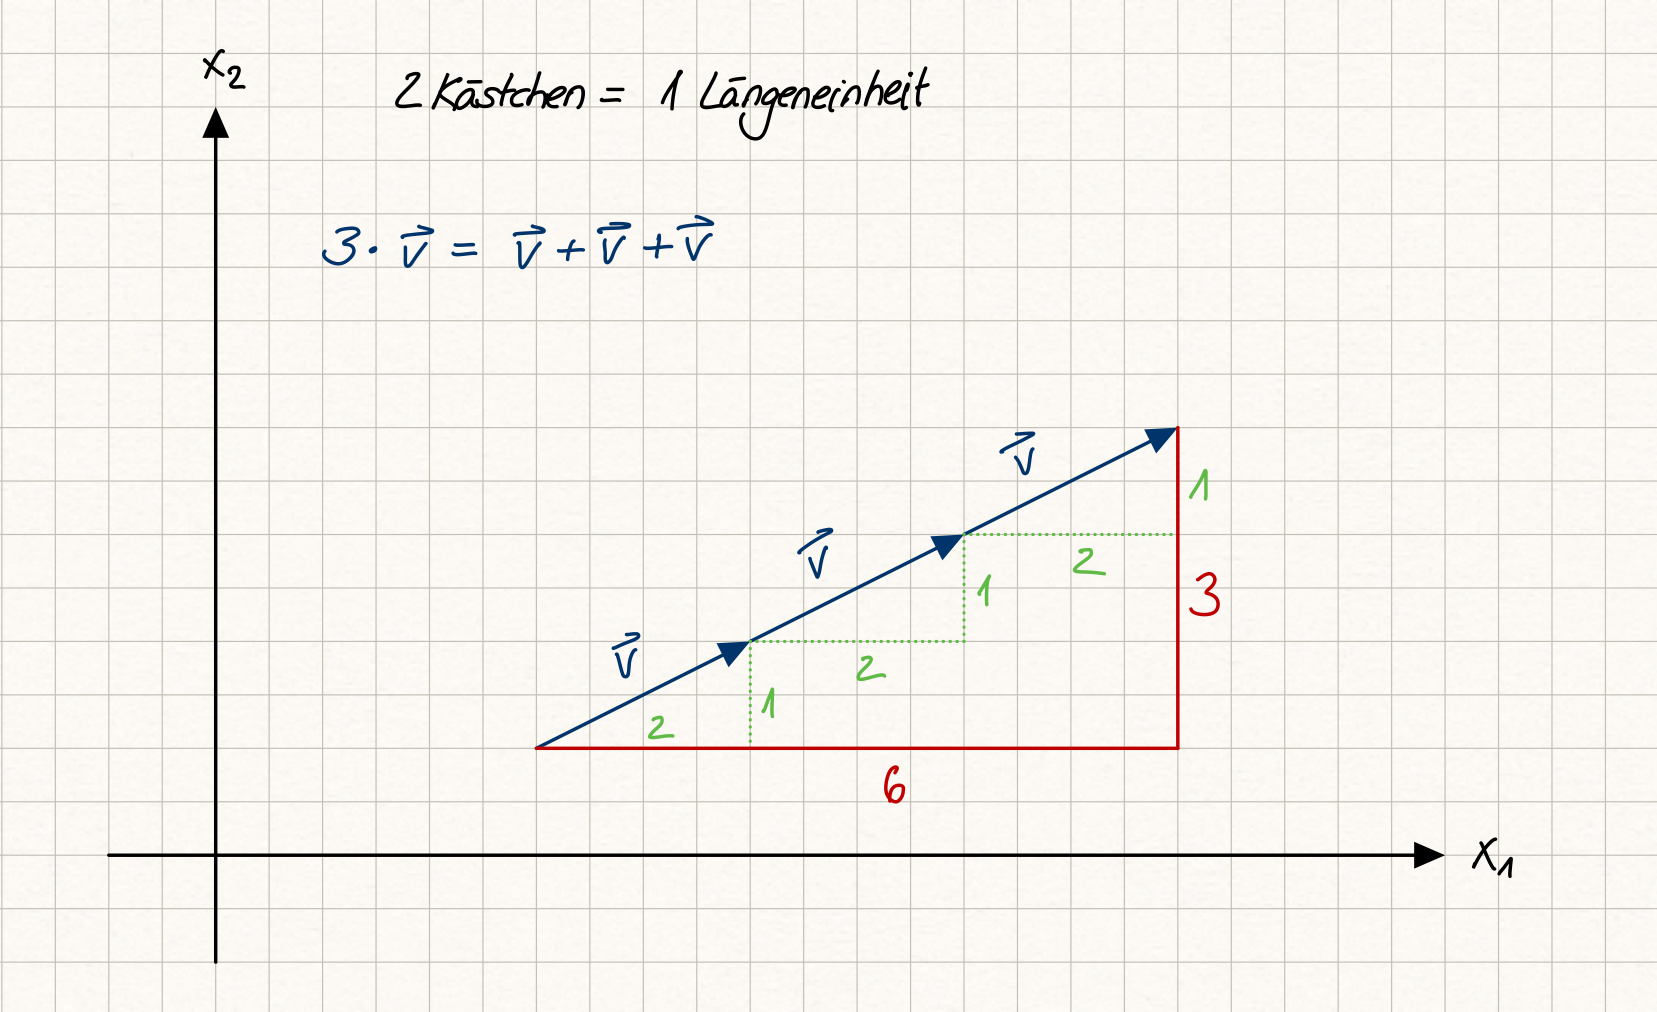 x₂
2 Kästchen = 1 Längeneinheit
3 · v⃗ = v⃗ + v⃗ + v⃗
v⃗
1
v⃗
2
3
1
v⃗
2
1
2
6
x₁